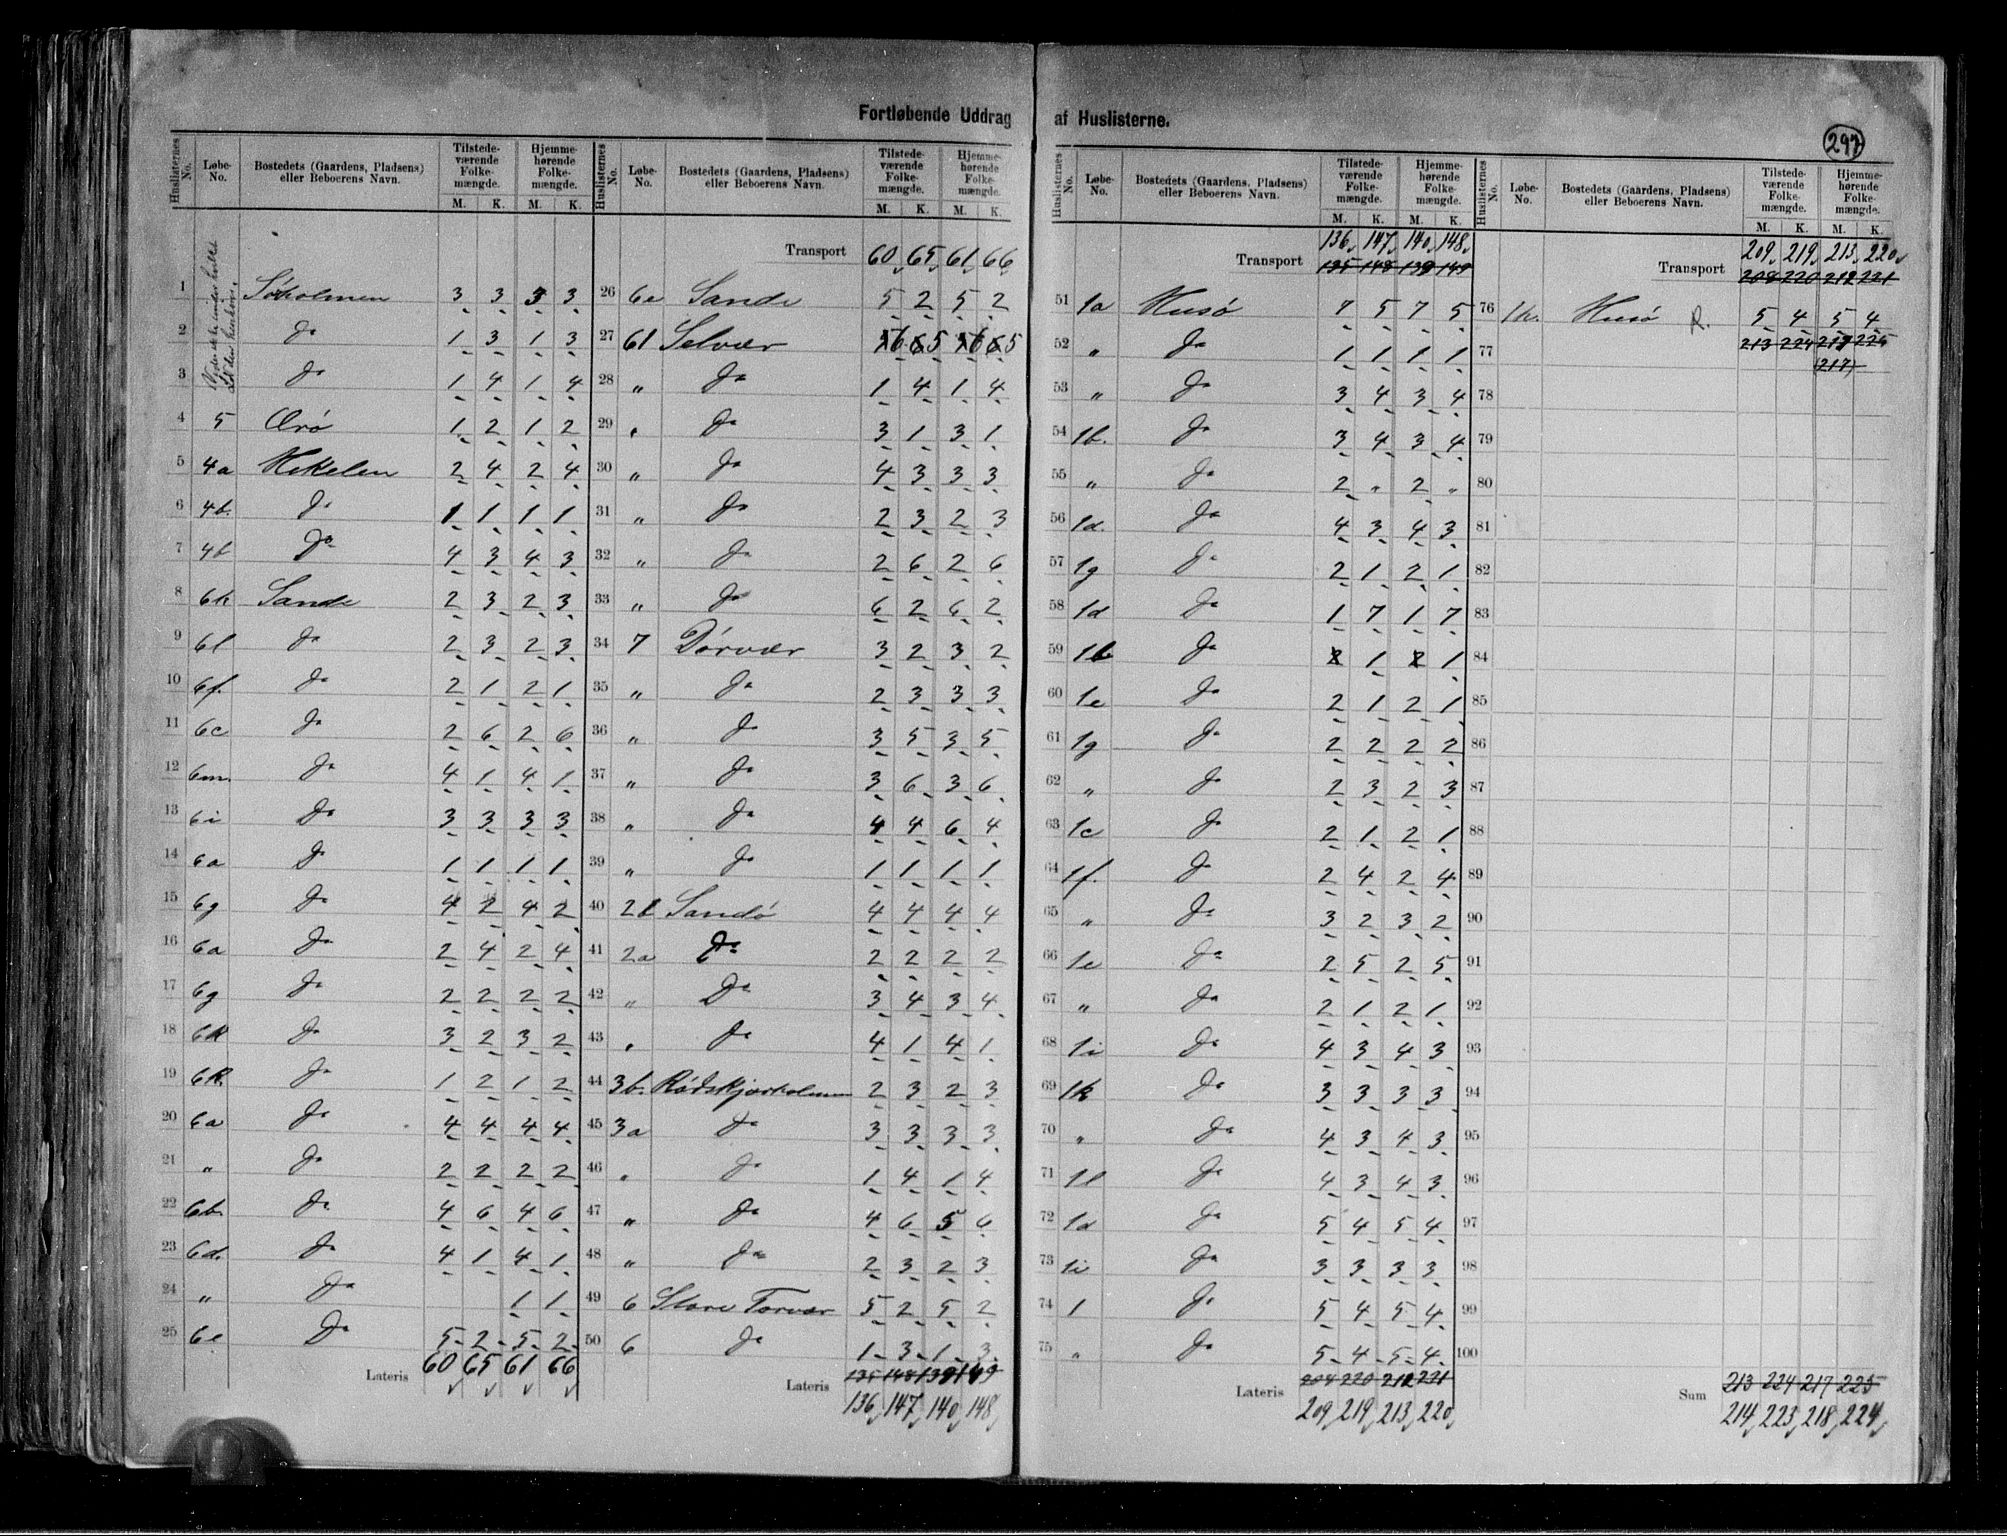 Fortløbende Uddrag af Huslisterne.
297
Huslisternes No. Løbe-No. Bostedets (Gaardens, Pladsens) eller Beboerens Navn. Tilstedeværende Folkemængde. M. K. Hjemmehørende Folkemængde. M. K.
1 Søholmen 3 3 3 3
2 Do 1 3 1 3
3 Do 1 4 1 4
4 5 Ærø 1 2 1 2
5 4a Hikelen 2 4 2 4
6 4b. Do 1 1 1 1
7 4b Do 4 3 4 3
8 6h Sande 2 3 2 3
9 6l Do 2 3 2 3
10 6f. Do 2 1 2 1
11 6c Do 2 6 2 6
12 6m. Do 4 1 4 1
13 6i Do 3 3 3 3
14 6a Do 1 1 1 1
15 6g Do 4 2 4 2
16 6a Do 2 4 2 4
17 6g Do 2 2 2 2
18 6k Do 3 2 3 2
19 6k. Do 1 2 1 2
20 6a Do 4 4 4 4
21 " Do 2 2 2 2
22 6b. Do 4 6 4 6
23 6d. Do 4 1 4 1
24 " Do 1 1
25 6e Do 5 2 5 2
Lateris 60 65 61 66
Huslisternes No. Løbe-No. Bostedets (Gaardens, Pladsens) eller Beboerens Navn. Tilstedeværende Folkemængde. M. K. Hjemmehørende Folkemængde. M. K.
Transport 60 65 61 66
26 6e Sande 5 2 5 2
27 6l Selvær 6 5 6 5
28 " Do 1 4 1 4
29 " Do 3 1 3 1
30 " Do 4 3 3 3
31 " Do 2 3 2 3
32 " Do 2 6 2 6
33 " Do 6 2 6 2
34 7 Dørvær 3 2 3 2
35 " Do 2 3 3 3
36 " Do 3 5 3 5
37 " Do 3 6 3 6
38 " Do 4 4 6 4
39 " Do 1 1 1 1
40 2b Sandø 4 4 4 4
41 2a Do 2 2 2 2
42 " Do 3 4 3 4
43 " Do 4 1 4 1
44 3b. Rødskjærholmen 2 3 2 3
45 3a Do 3 3 3 3
46 " Do 1 4 1 4
47 " Do 4 6 5 6
48 " Do 2 3 2 3
49 6 Store Torvær 5 2 5 2
50 6 Do 1 3 1 3
Lateris 135 148 139 149
136 147 140 148
Huslisternes No. Løbe-No. Bostedets (Gaardens, Pladsens) eller Beboerens Navn. Tilstedeværende Folkemængde. M. K. Hjemmehørende Folkemængde. M. K.
136 147 140 148
Transport 135 148 139 149
51 1a Husø 7 5 7 5
52 " Do 1 1 1 1
53 " Do 3 4 3 4
54 1b. Do 3 4 3 4
55 " Do 2 " 2 "
56 1d. Do 4 3 4 3
57 1g Do 2 1 2 1
58 1d Do 1 7 1 7
59 1b Do 2 1 2 1
60 1e Do 2 1 2 1
61 1g Do 2 2 2 2
62 " Do 2 3 2 3
63 1c Do 2 1 2 1
64 1f. Do 2 4 2 4
65 " Do 3 2 3 2
66 1e Do 2 5 2 5
67 " Do 2 1 2 1
68 1i Do 4 3 4 3
69 1k Do 3 3 3 3
70 " Do 4 3 4 3
71 1l Do 4 3 4 3
72 1d Do 5 4 5 4
73 1i Do 3 3 3 3
74 1 Do 5 4 5 4
75 " Do 5 4 5 4
Lateris 208 220 212 221
209 219 213 220
Huslisternes No. Løbe-No. Bostedets (Gaardens, Pladsens) eller Beboerens Navn. Tilstedeværende Folkemængde. M. K. Hjemmehørende Folkemængde. M. K.
209 219 213 220
Transport 208 220 212 221
76 1h. Husø R. 5 4 5 4
77 213 224 217 225
(217)
78
79
80
81
82
83
84
85
86
87
88
89
90
91
92
93
94
95
96
97
98
99
100
Sum 213 224 217 225
214 223 218 224